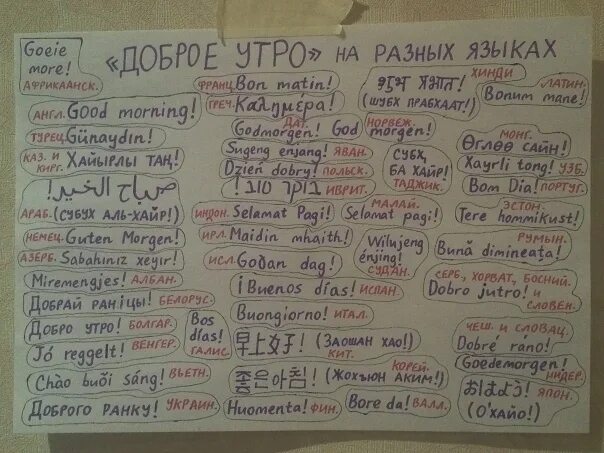 Goeie more! АФРИКААНСК.
«ДОБРОЕ УТРО» НА РАЗНЫХ ЯЗЫКАХ
АНГЛ. Good morning!
ТУРЕЦ. Günaydın!
КАЗ. И КИРГ. Хайырлы таң!
صباح الخير!
АРАБ. (СУБУХ АЛЬ-ХАЙР!)
НЕМЕЦ. Guten Morgen!
АЗЕРБ. Sabahınız xeyır!
Miremengjes! АЛБАН.
Добрай раніцы! БЕЛОРУС.
Добро утро! БОЛГАР.
Jó reggelt! ВЕНГЕР.
Bos días! ГАЛИС.
Chào buổi sáng! ВЬЕТН.
Доброго ранку! УКРАИН.
ФРАНЦ. Bon matin!
ГРЕЧ. Καλημερα!
ДАТ. Godmorgen!
God morgen! НОРВЕЖ.
Sugeng enjang! ЯВАН.
Dzień dobry! ПОЛЬСК.
בוקר טוב! ИВРИТ.
ИНДОН. Selamat Pagi!
МАЛАЙ. Selamat pagi!
ИРЛ. Maidin mhaith!
ИСЛ. Goðan dag!
¡Buenos días! ИСПАН.
Buongiorno! ИТАЛ.
早上好! (ЗАОШАН ХАО!) КИТ.
좋은아침! (ЖОХЪЮН АКИМ!) КОРЕЙ.
Huomenta! ФИН.
Bore da! ВАЛЛ.
(ШУБХ ПРАБХААТ!) ХИНДИ
ЛАТИН. Bonum mane!
СУБҲ БА ХАЙР! ТАДЖИК.
МОНГ. Өглөө сайн!
Xayrli tong! УЗБ.
Bom Dia! ПОРТУГ.
ЭСТОН. Tere hommikust!
Wilujeng énjing! СУДАН.
РУМЫН. Bună dimineața!
СЕРБ., ХОРВАТ., БОСНИЙ. И СЛОВЕН. Dobro jutro!
ЧЕШ. И СЛОВАЦ. Dobré ráno!
Goedemorgen! НИДЕР.
おはよう! ЯПОН.
(О'ХАЙО!)